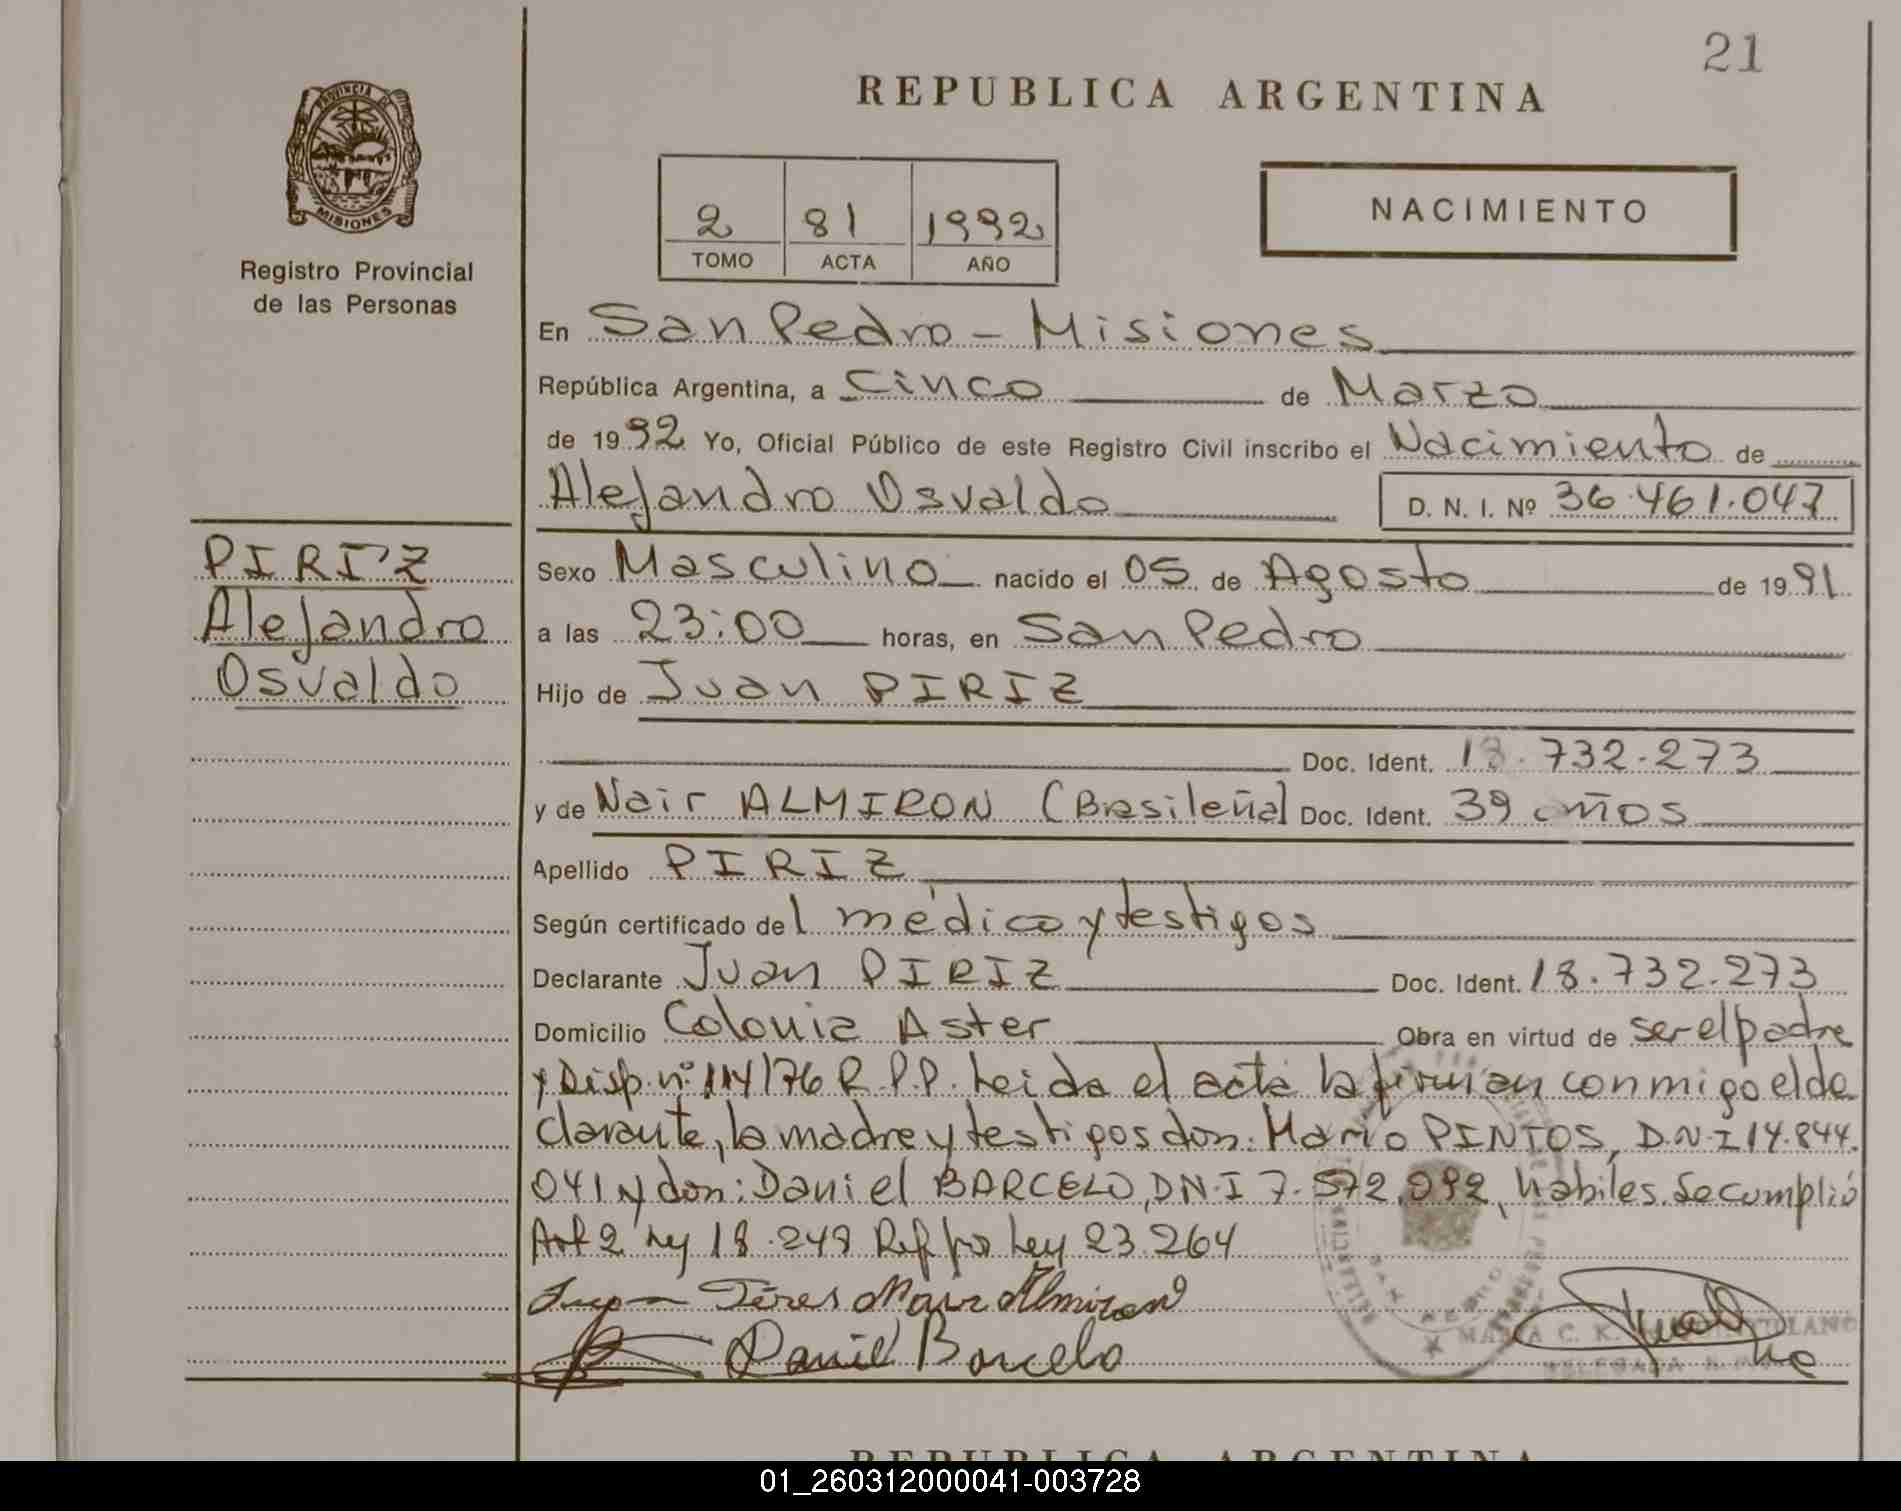 21
PROVINCIA DE
MISIONES
Registro Provincial
de las Personas
REPUBLICA ARGENTINA
2 81 1992
TOMO ACTA AÑO
NACIMIENTO
En San Pedro - Misiones
República Argentina, a Cinco de Marzo
de 1992 Yo, Oficial Público de este Registro Civil inscribo el Nacimiento de
Alejandro Osvaldo D. N. I. Nº 36.461.047
PIRIZ
Alejandro
Osvaldo
Sexo Masculino nacido el 05 de Agosto de 1991
a las 23:00 horas, en San Pedro
Hijo de Juan PIRIZ
Doc. Ident. 18.732.273
y de Nair ALMIRON (Brasileña) Doc. Ident. 39 años
Apellido PIRIZ
Según certificado del médico y testigos
Declarante Juan PIRIZ Doc. Ident. 18.732.273
Domicilio Colonia Aster Obra en virtud de ser el padre
y Disp. nº 114/76 R.P.P. Leida el acta la firman conmigo el de
clarante, la madre y testigos don: Mario PINTOS, D.N.I 14.844.
041 y don: Daniel BARCELO, DN.I 7.572.092, habiles. Se cumplió
Art 2 Ley 18.248 Ref por Ley 23.264
Nair Almiron
Daniel Barcelo
SAN PEDRO
MARIA C. K.
DELEGADA
REPUBLICA ARGENTINA
01_260312000041-003728